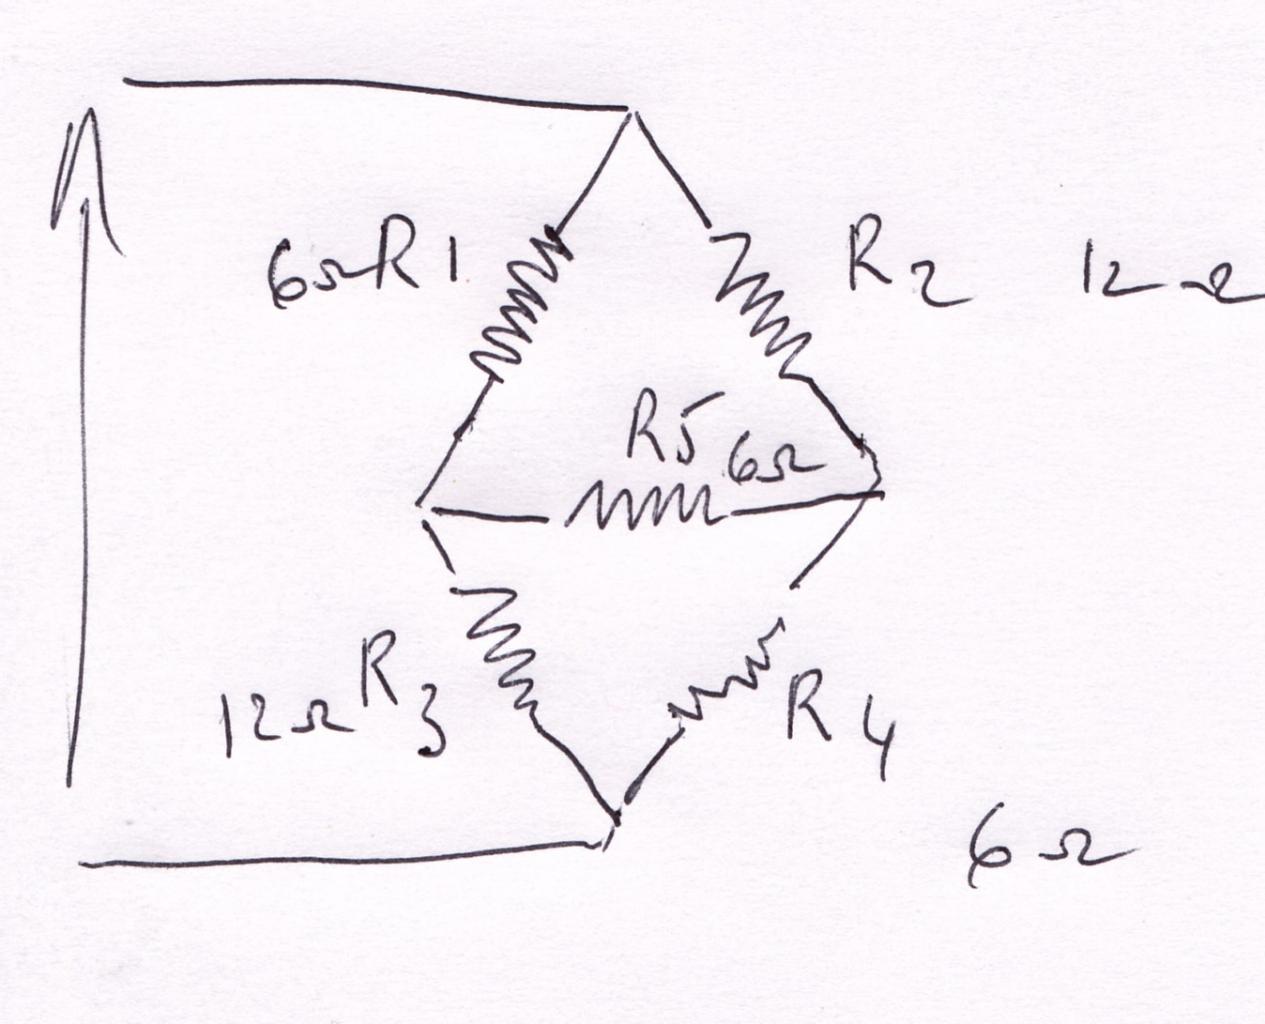 6Ω R1
R2 12Ω
R5 6Ω
12Ω R3
R4
6Ω